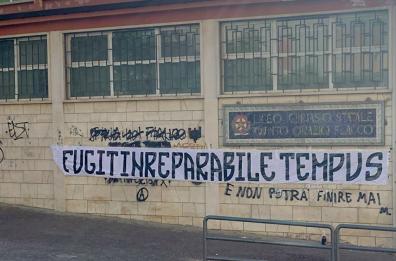 LICEO GINNASIO STATALE
QUINTO ORAZIO FLACCO
FUGIT INREPARABILE TEMPUS
E NON POTRÀ FINIRE MAI